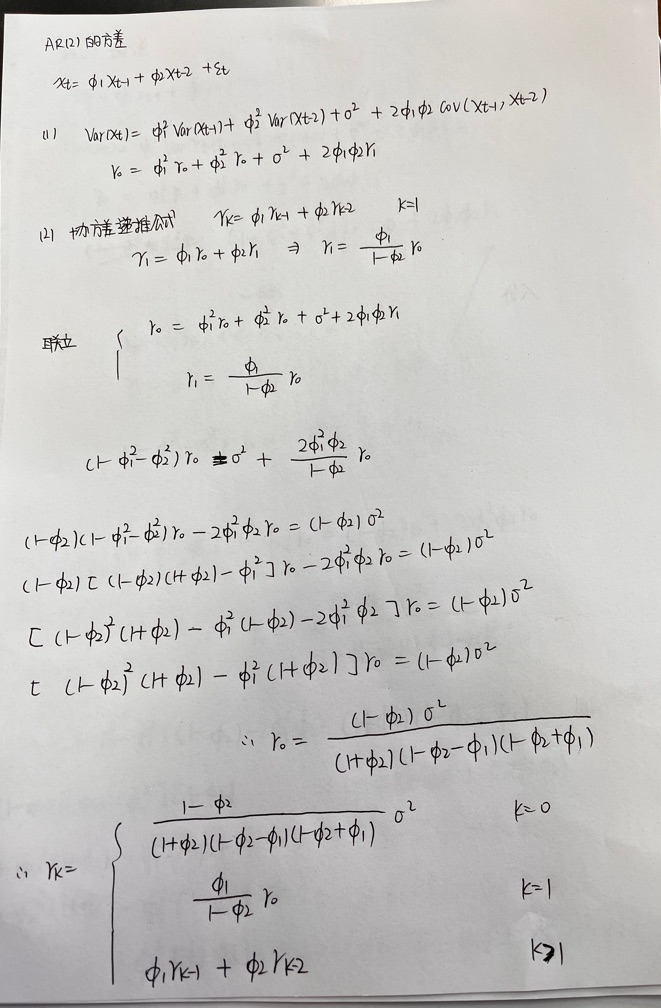 AR(2)的方差
xt = ϕ1 xt-1 + ϕ2 xt-2 + εt
(1) Var(xt) = ϕ1² Var(xt-1) + ϕ2² Var(xt-2) + σ² + 2ϕ1ϕ2 cov(xt-1, xt-2)
r0 = ϕ1² r0 + ϕ2² r0 + σ² + 2ϕ1ϕ2r1
(2) 协方差递推公式 rk = ϕ1 rk-1 + ϕ2 rk-2 k=1
r1 = ϕ1 r0 + ϕ2 r1 ⇒ r1 = ϕ1/(1-ϕ2) r0
联立 { r0 = ϕ1² r0 + ϕ2² r0 + σ² + 2ϕ1ϕ2r1
r1 = ϕ1/(1-ϕ2) r0
(1-ϕ1²-ϕ2²) r0 = σ² + 2ϕ1²ϕ2/(1-ϕ2) r0
(1-ϕ2)(1-ϕ1²-ϕ2²) r0 - 2ϕ1²ϕ2 r0 = (1-ϕ2) σ²
(1-ϕ2) [ (1-ϕ2)(1+ϕ2) - ϕ1² ] r0 - 2ϕ1²ϕ2 r0 = (1-ϕ2) σ²
[ (1-ϕ2)² (1+ϕ2) - ϕ1² (1-ϕ2) - 2ϕ1² ϕ2 ] r0 = (1-ϕ2) σ²
[ (1-ϕ2)² (1+ϕ2) - ϕ1² (1+ϕ2) ] r0 = (1-ϕ2) σ²
∴ r0 = (1-ϕ2) σ² / (1+ϕ2)(1-ϕ2-ϕ1)(1-ϕ2+ϕ1)
∴ rk = { 1-ϕ2 / (1+ϕ2)(1-ϕ2-ϕ1)(1-ϕ2+ϕ1) σ² k=0
ϕ1/(1-ϕ2) r0 k=1
ϕ1 rk-1 + ϕ2 rk-2 k>1